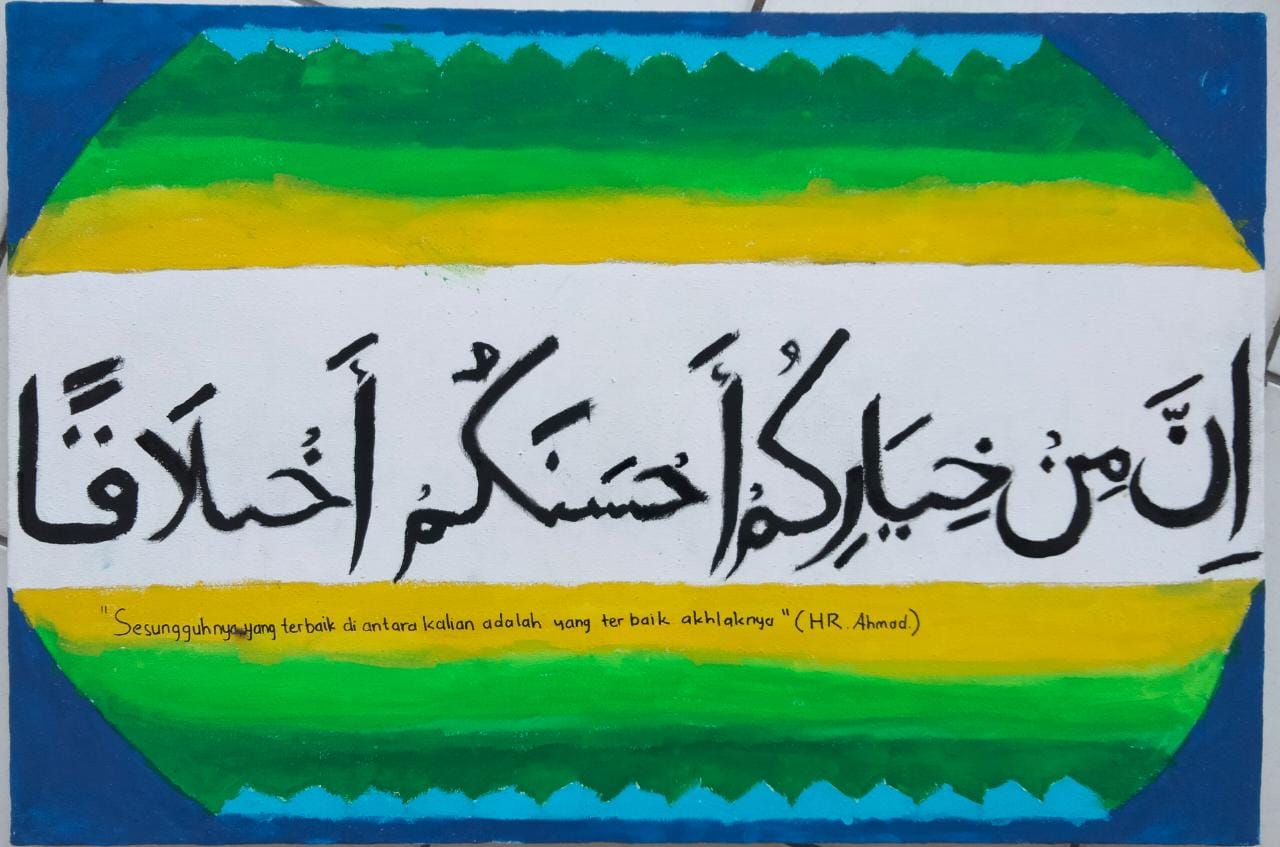 إِنَّ مِنْ خِيَارِكُمْ أَحْسَنَكُمْ أَخْلَاقًا
"Sesungguhnya yang terbaik di antara kalian adalah yang terbaik akhlaknya" (HR. Ahmad.)